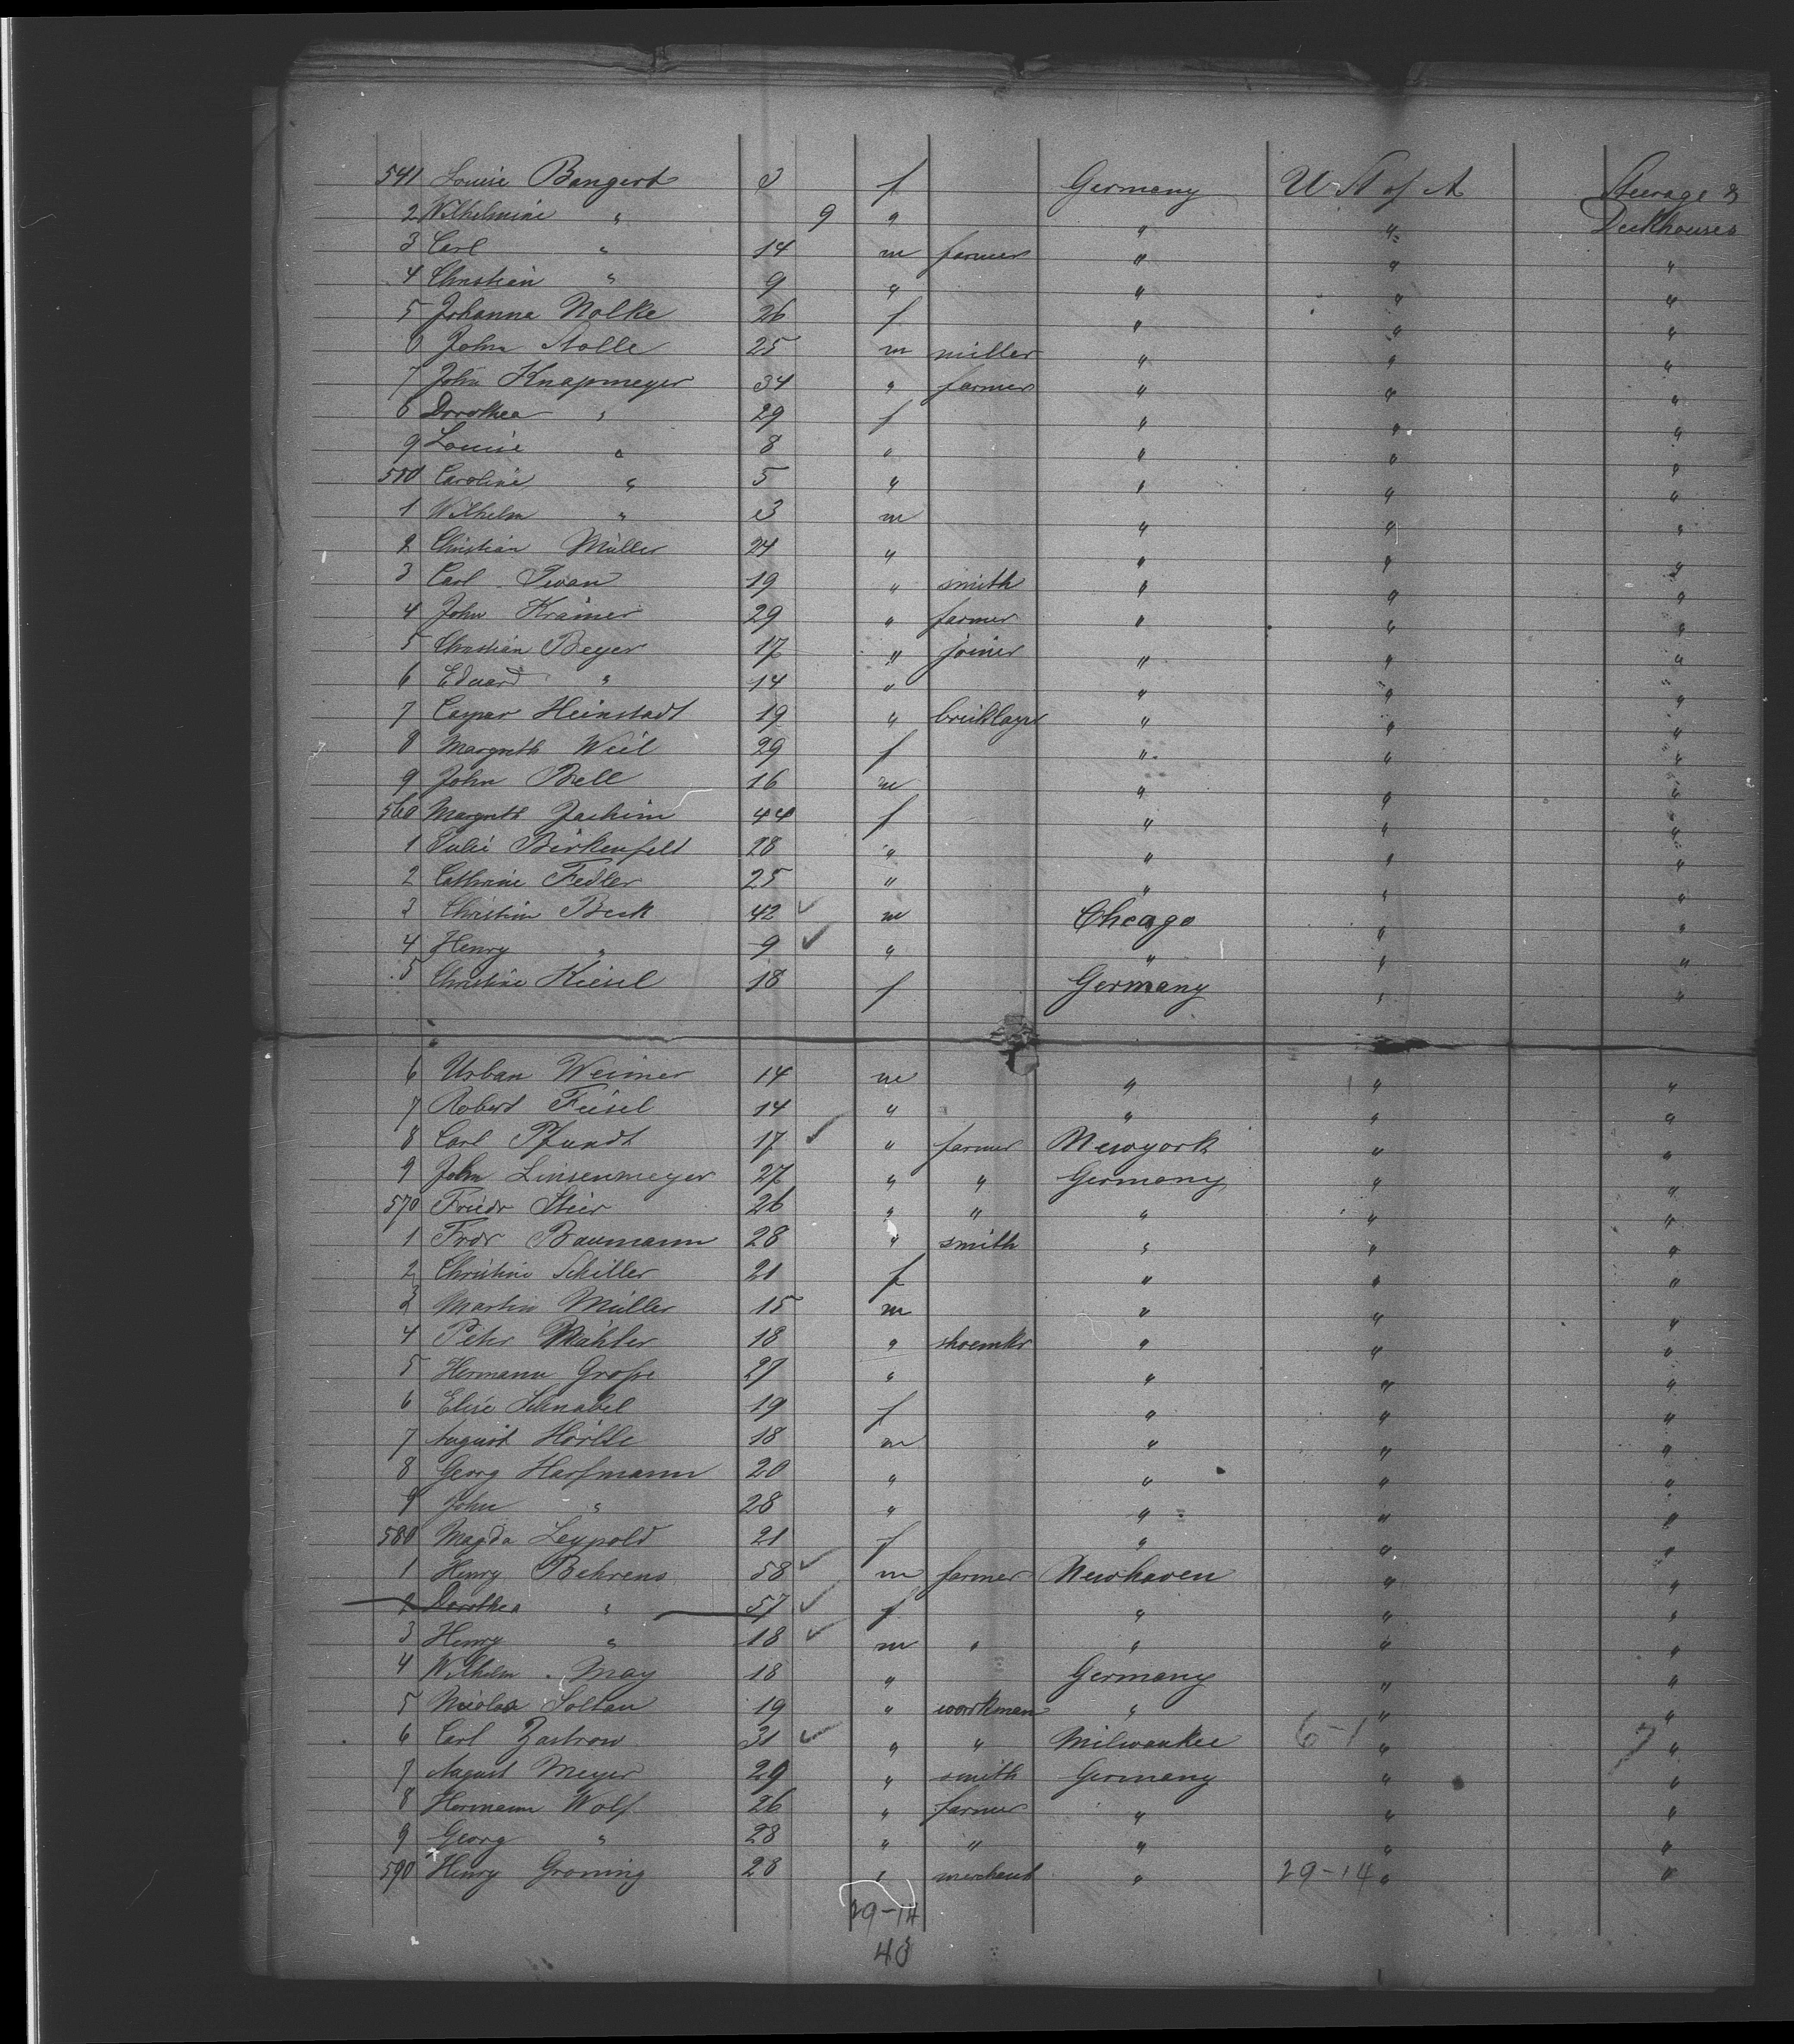 541 Louise Bangert 3 f Germany U St of A Steerage &
2 Wilhelmine " 9 " " " Deckhouses
3 Carl " 14 m farmer " " "
4 Christian " 9 " " " "
5 Johanna Nolke 26 f " " "
6 John Stolle 25 m miller " " "
7 John Knapmeyer 34 " farmer " " "
8 Dorothea " 29 f " " "
9 Louise " 8 " " " "
550 Caroline " 5 " " " "
1 Wilhelm " 3 m " " "
2 Christian Müller 24 " " " "
3 Carl 19 " smith " " "
4 John Kramer 29 " farmer " " "
5 Christian Beyer 17 " joiner " " "
6 Eduard " 14 " " " "
7 Caspar Heinstadt 19 " bricklayer " " "
8 Margreth Weil 29 f " " "
9 John Bell 16 m " " "
560 Margreth Jachim 44 f " " "
1 Julie Birkenfeld 28 " " " "
2 Cathrine Fedler 25 " " " "
3 Christian Beck 42 m Chicago " "
4 Henry " 9 " " " "
5 Christine Kiesel 18 f Germany " "
6 Urban Weimer 14 m " " "
7 Robert Feisel 14 " " " "
8 Carl Pfundt 17 " farmer Newyork " "
9 John Linsenmeyer 27 " " Germany " "
570 Friedr Stier 26 " " " " "
1 Frdr Baumann 28 " smith " " "
2 Christine Schiller 21 f " " "
3 Martin Müller 15 m " " "
4 Peter Mähler 18 " shoemkr " " "
5 Hermann Grosse 27 " " " "
6 Elise Schnabel 19 f " " "
7 August 18 m " " "
8 Georg Harfmann 20 " " " "
9 John " 28 " " " "
580 Magda Leypold 21 f " " "
1 Henry Behrens 58 m farmer Newhaven " "
2 Dorothea " 57 f " " "
3 Henry " 18 m " " " "
4 Wilhelm May 18 " Germany " "
5 Nicolaa Soltau 19 " workman " " "
6 Carl Zastrow 31 " " Milwaukee 6-1 " "
7 August Meyer 29 " smith Germany " "
8 Hermann Wolf 26 " farmer " " "
9 Georg " 28 " " " " "
590 Henry Groning 28 " merchant " 29-14 " "
29-14
43